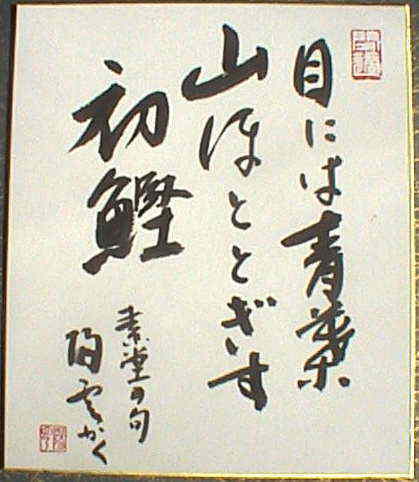 目には青葉
山ほととぎす
初鰹
素堂の句
陽雲かく